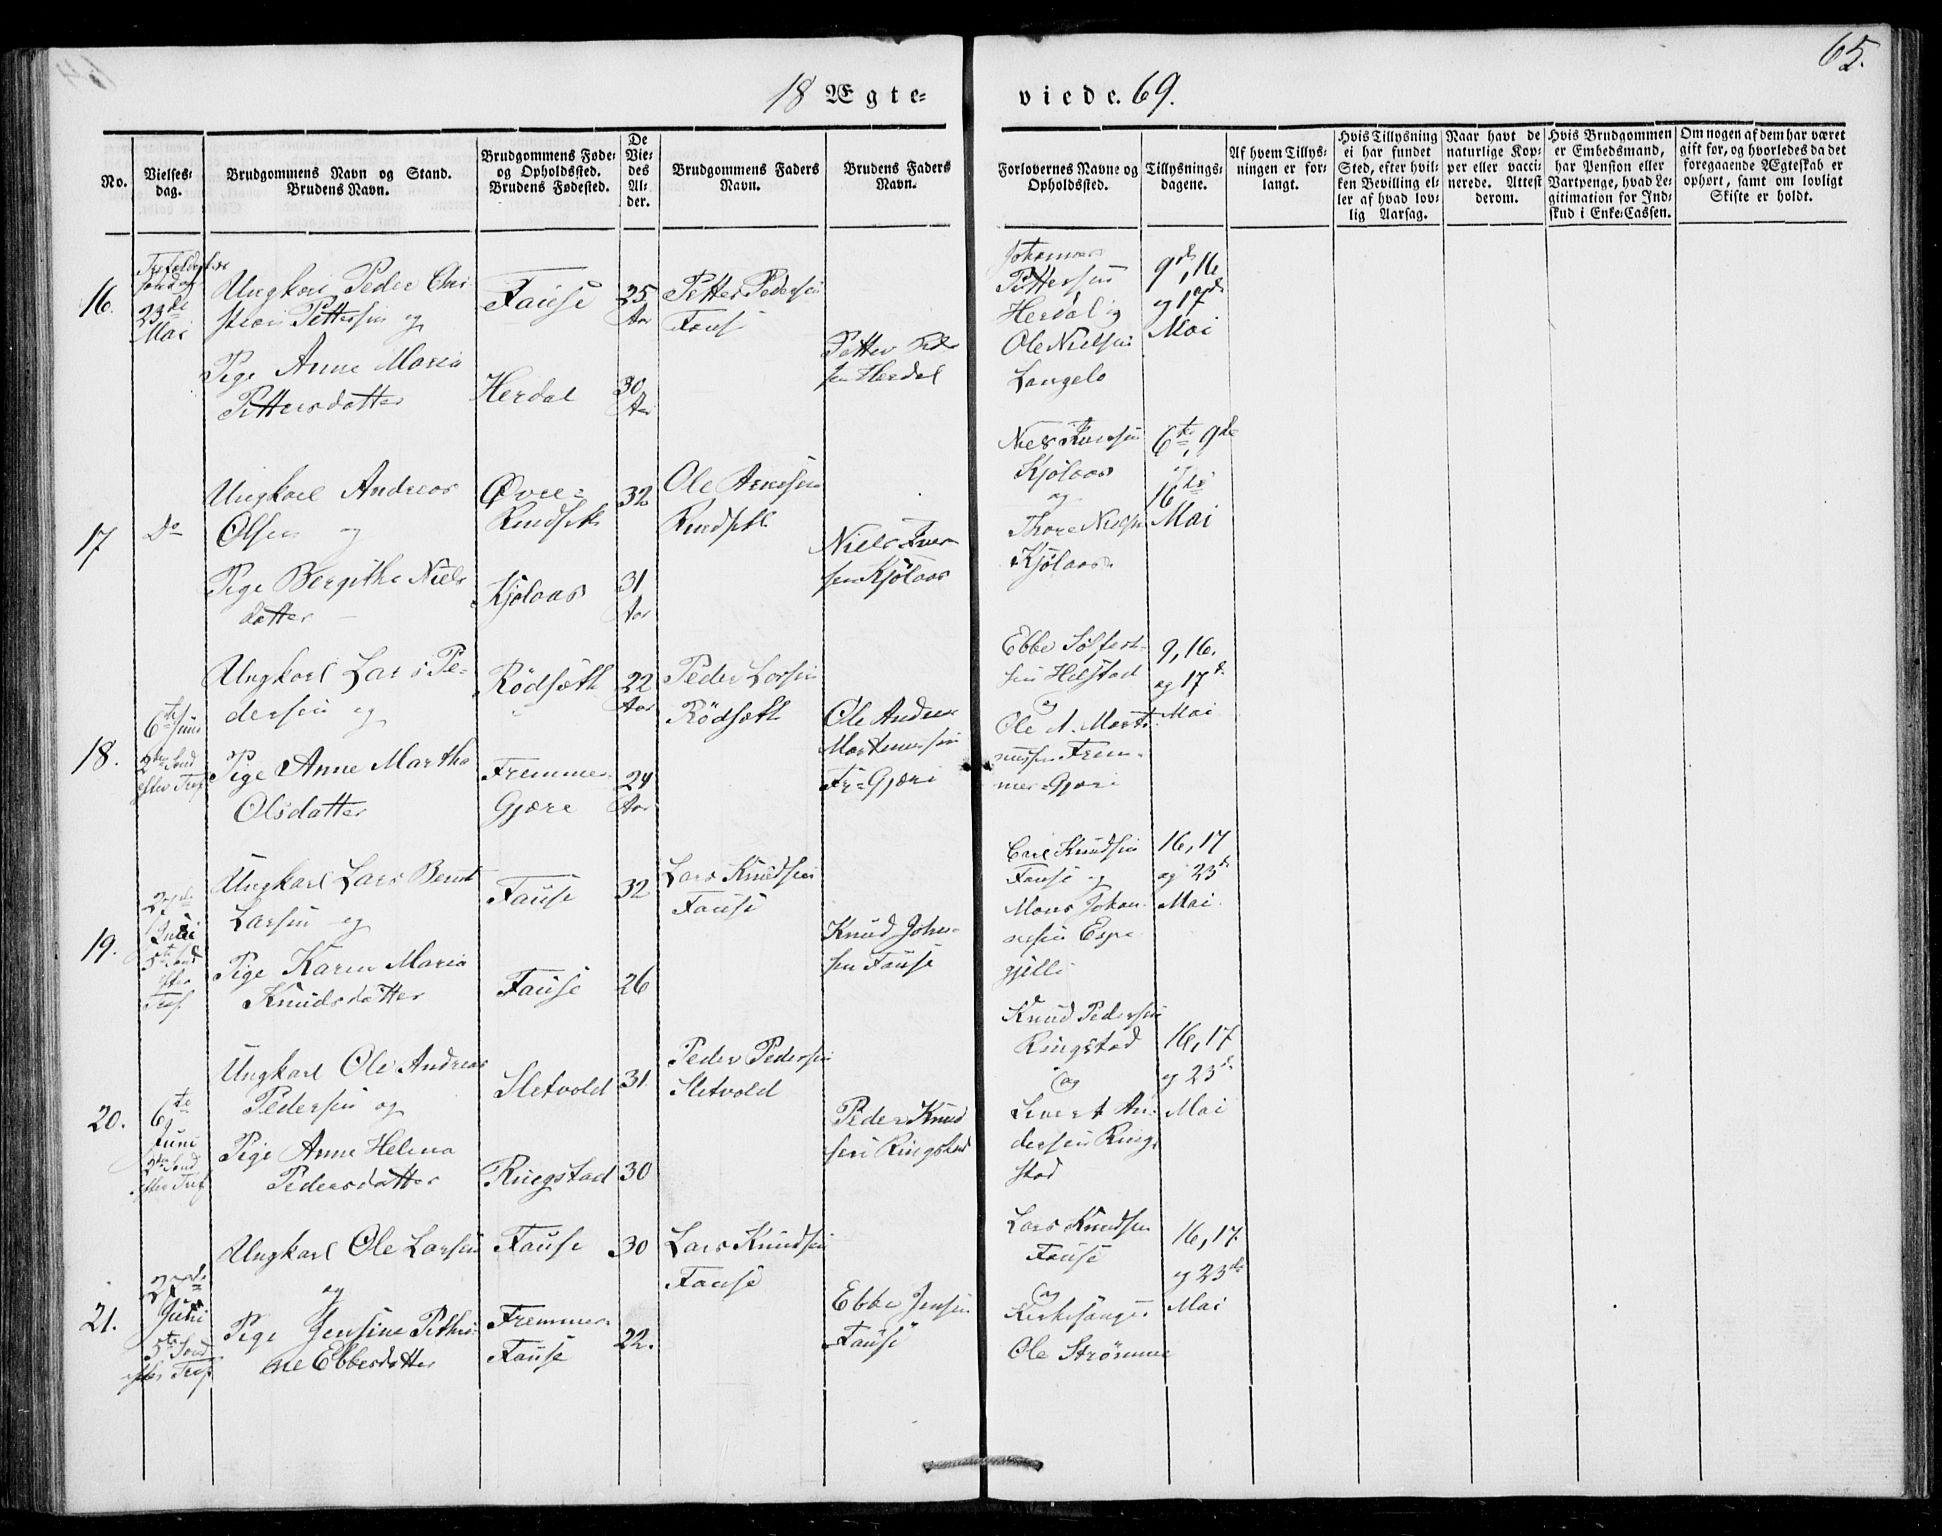 65.
18 Ægte-
viede. 69.
No.
Vielses-
dag.
Brudgommens Navn og Stand.
Brudens Navn.
Brudgommens Føde-
og Opholdssted.
Brudens Fødested.
De
Vie-
des
Al-
der.
Brudgommens Faders
Navn.
Brudens Faders
Navn.
Forlovernes Navne og
Opholdssted.
Tillysnings-
dagene.
Af hvem Tillys-
ningen er for-
langt.
Hvis Tillysning
ei har fundet
Sted, efter hvil-
ken Bevilling el-
ler af hvad lov-
lig Aarsag.
Naar havt de
naturlige Kop-
per eller vacci-
nerede. Attest
derom.
Hvis Brudgommen
er Embedsmand,
har Pension eller
Vartpenge, hvad Le-
gitimation for Ind-
skud i Enke-Cassen.
Om nogen af dem har været
gift før, og hvorledes da det
foregaaende Ægteskab er
ophørt, samt om lovligt
Skifte er holdt.
16.
23de
Mai
Ungkarl Peder Chri
stian Pettersen og
Pige Anne Maria
Pettersdatter
Fause
Herdal
25
Aar
30
Aar
Petter Pedersen
Fause
Petter Peder
sen Herdal
Johannes
Pettersen
Herdal og
Ole Nielsen
Langelo
9de, 16
og 17de
Mai
17
Do
Ungkarl Andreas
Olsen og
Pige Bergithe Niels
datter
Øvre-
Rindseth
Kjølaas
32
31
Aar
Ole Arnesen
Rindseth
Niels Iver-
sen Kjølaas
Niels Iversen
Kjølaas
og
Thore Nielsen
Kjølaas.
6te, 9de
og
16de
Mai
18.
6te Juni
2den Sønd
efter Tref
Ungkarl Lars Pe-
dersen og
Pige Anne Martha
Olsdatter
Rødsæth
Fremmer-
Gjære
22
Aar
24
Aar
Peder Larsen
Rødsæth
Ole Andreas
Martinussen
Fr=Gjære
Ebbe Sølfest-
sen Helstad
og
Ole A. Marti-
nussen Frem-
mer=Gjære
9, 16.
og 17de
Mai
19.
27de
Juni
5te Sønd
efter
Tref.
Ungkarl Lars Bernt
Larsen og
Pige Karen Maria
Knudsdatter
Fause
Fause
32
26
Lars Knudsen
Fause
Knud John-
sen Fause
Carl Knudsen
Fause og
Mons Johan-
nesen Espe
gjelli
16, 17
og 23de
Mai.
20.
6te
Juni
2den Sønd
efter Tref
Ungkarl Ole Andreas
Pedersen og
Pige Anne Helena
Pedersdatter
Sletvold
Ringstad
31
30
Peder Pedersen
Sletvold
Peder Knud
sen Ringstad
Knud Pedersen
Ringstad
og
Sivert An-
dersen Ring-
stad
16, 17
og 23de
Mai
21.
27de
Juni
5te Sønd
efter Tref
Ungkarl Ole Larsen
og
Pige Jensine Pethri-
ne Ebbesdatter
Fause
Fremmer-
Fause
30
22.
Lars Knudsen
Fause
Ebbe Jensen
Fause
Lars Knudsen
Fause
og
Kirkesanger
Ole Strømme
16, 17
og 23de
Mai